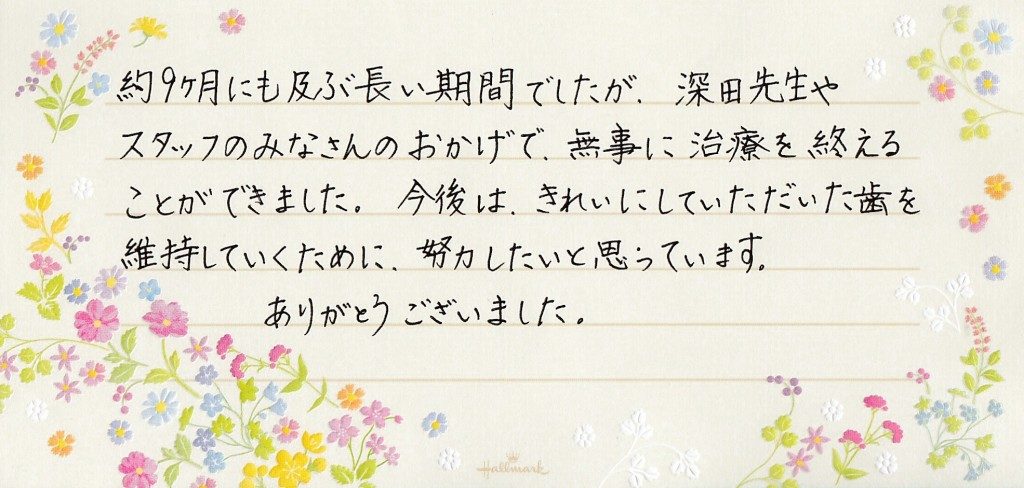 約9ヶ月にも及ぶ長い期間でしたが、深田先生や
スタッフのみなさんのおかげで、無事に治療を終える
ことができました。今後は、きれいにしていただいた歯を
維持していくために、努力したいと思っています。
ありがとうございました。
Hallmark